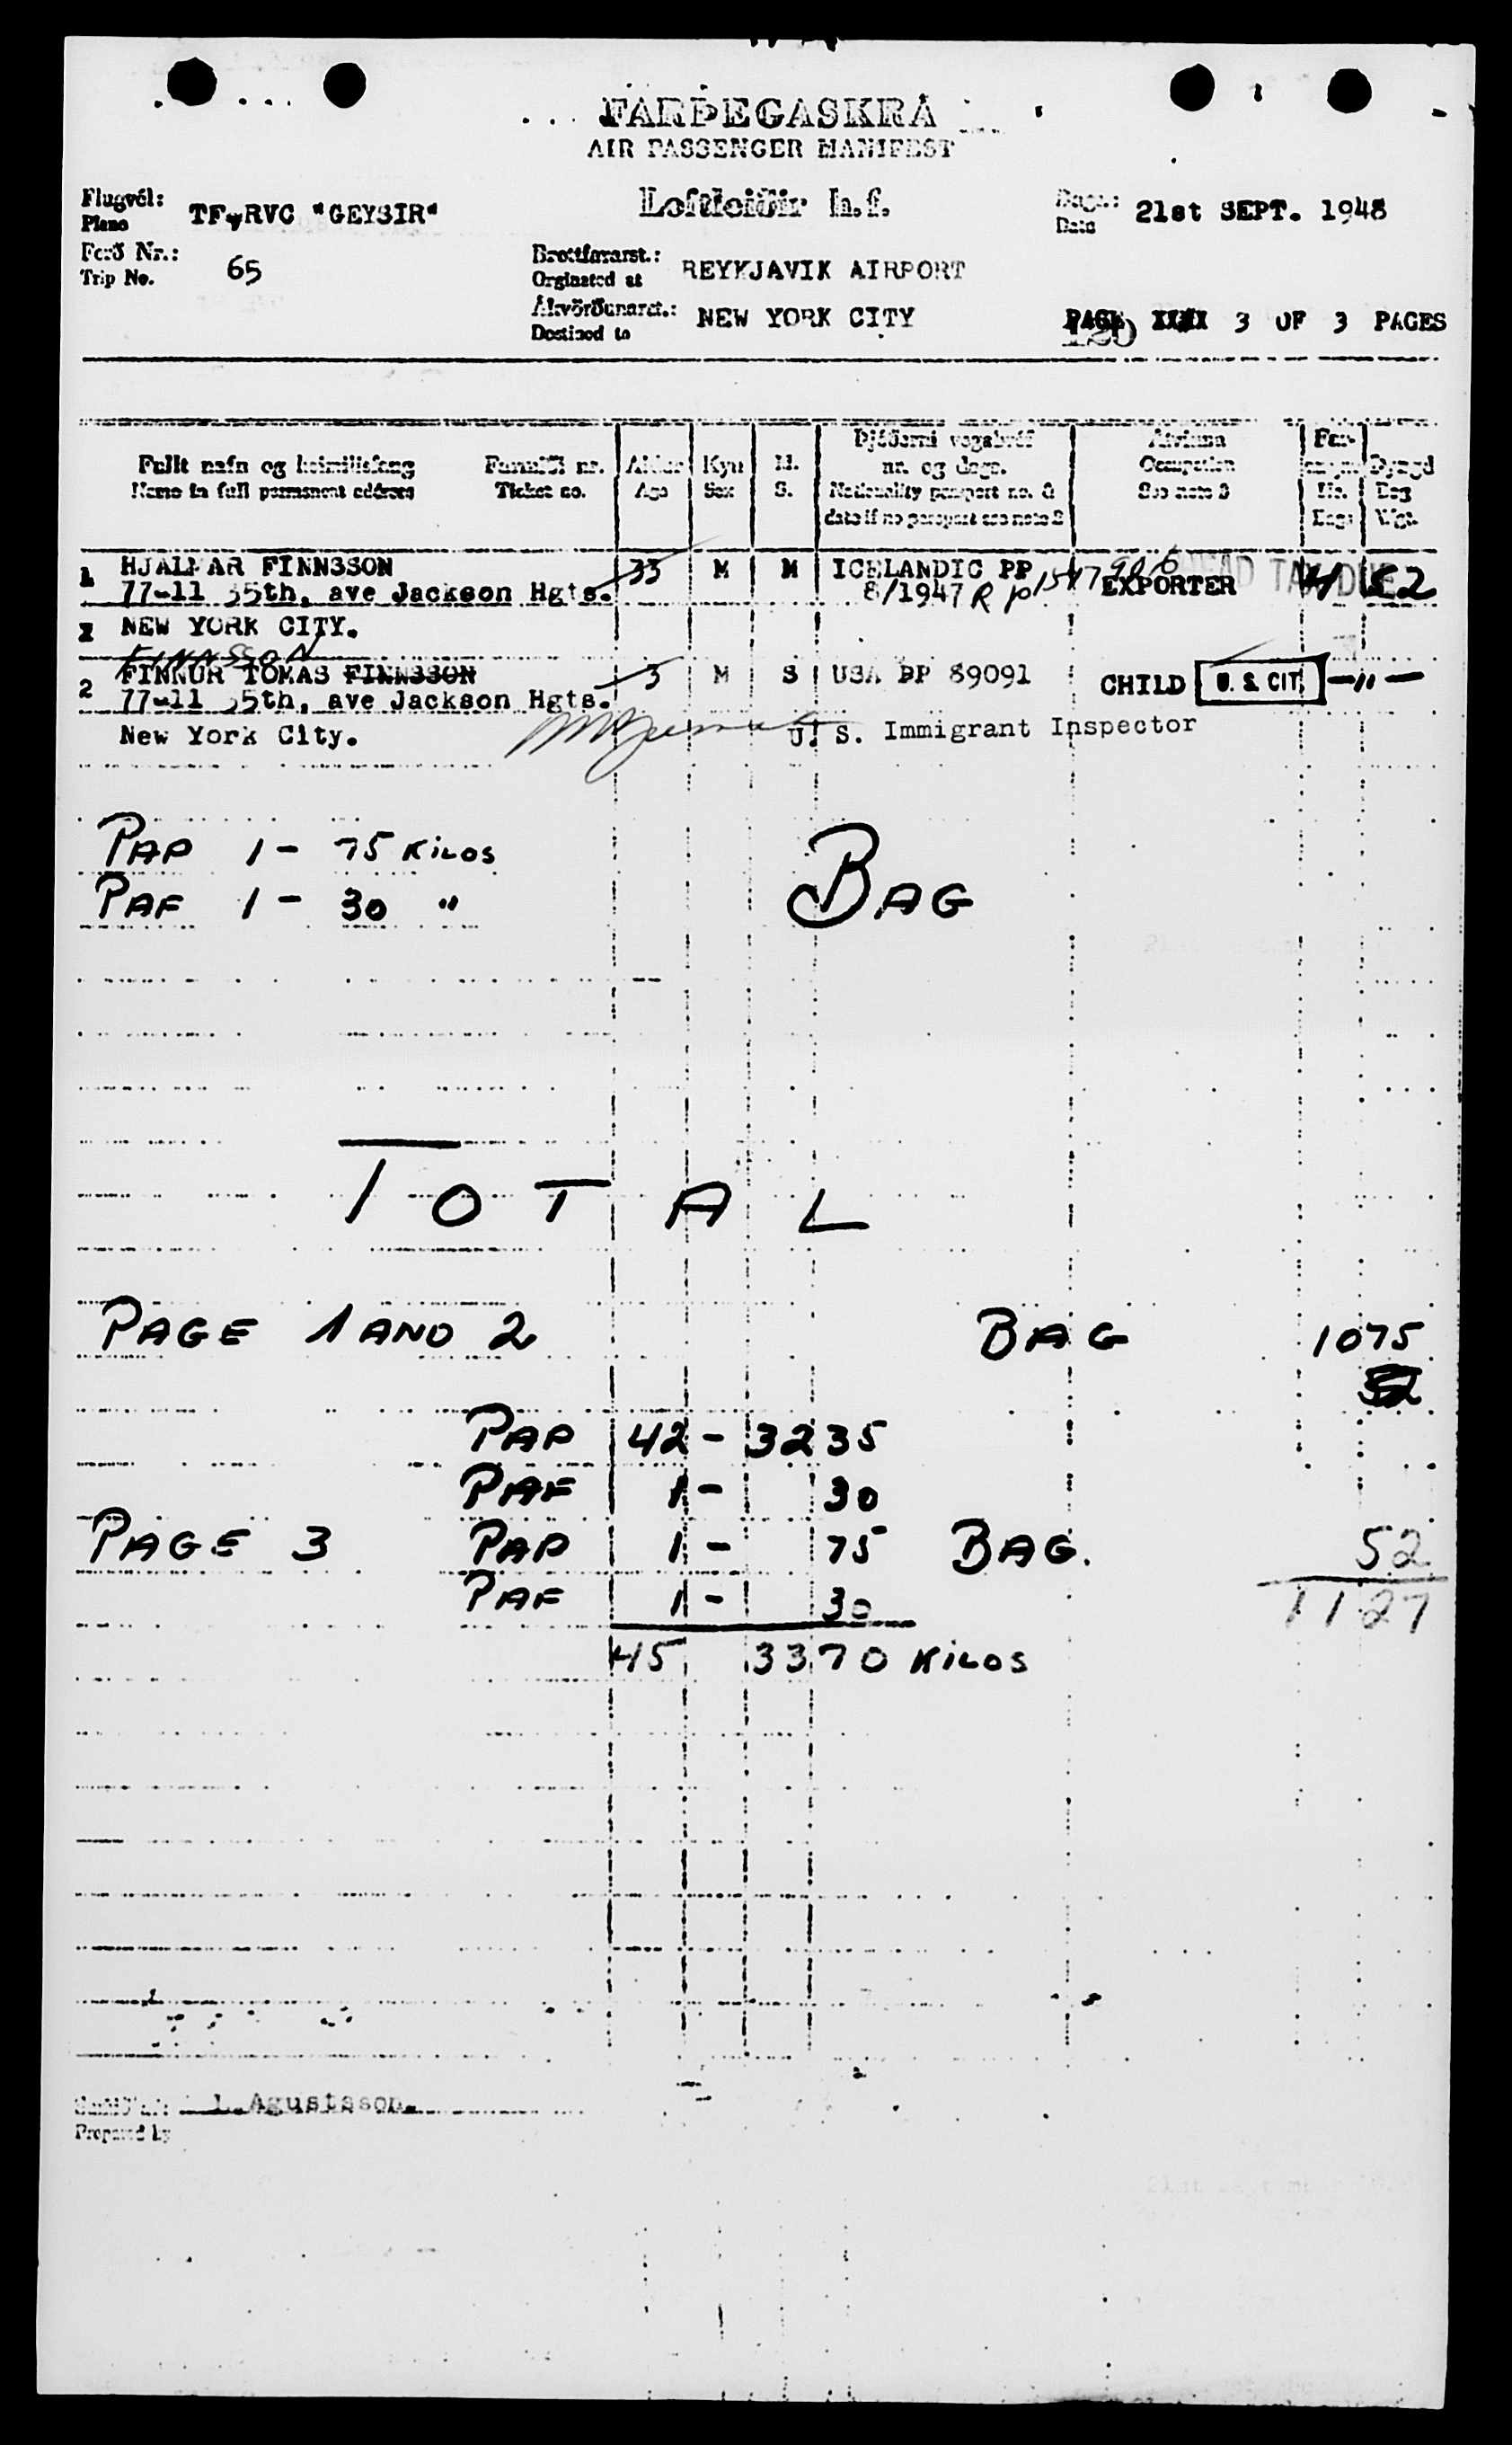 FARÞEGASKRÁ
AIR PASSENGER MANIFEST
Flugvél:
Plane
TF-RVC "GEYSIR"
Loftleiðir h.f.
Dags.:
Date
21st SEPT. 1948
Ferð Nr.:
Trip No.
65
Brottfararst.:
Orginated at
REYKJAVIK AIRPORT
Ákvörðunarst.:
Destined to
NEW YORK CITY
PAGE 3 OF 3 PAGES
Fullt nafn og heimilisfang
Name in full permanent address
Farmiði nr.
Ticket no.
Aldur
Age
Kyn
Sex
M.
S.
Þjóðerni vegabréf
nr. og dags.
Nationality passport no. &
date if no passport see note 2
Atvinna
Occupation
See note 3
Far-
No.
Bags
Þyngd
Bag
Wgt.
1 HJALMAR FINNSSON 33 M M ICELANDIC PP EXPORTER 4 52
77-11 35th, ave Jackson Hgts. 8/1947
NEW YORK CITY.
FINNSSON
2 FINNUR TOMAS FINNSSON 3 M S USA PP 89091 CHILD U. S. CIT. -"-
77-11 35th, ave Jackson Hgts.
New York City. U. S. Immigrant Inspector
PAP 1 - 75 KILOS
PAF 1 - 30 "
BAG
TOTAL
PAGE 1 AND 2 BAG 1075
52
PAP 42 - 3235
PAF 1 - 30
PAGE 3 PAP 1 - 75 BAG. 52
PAF 1 - 30 1127
45 3370 KILOS
L. Agustsson.
Prepared by